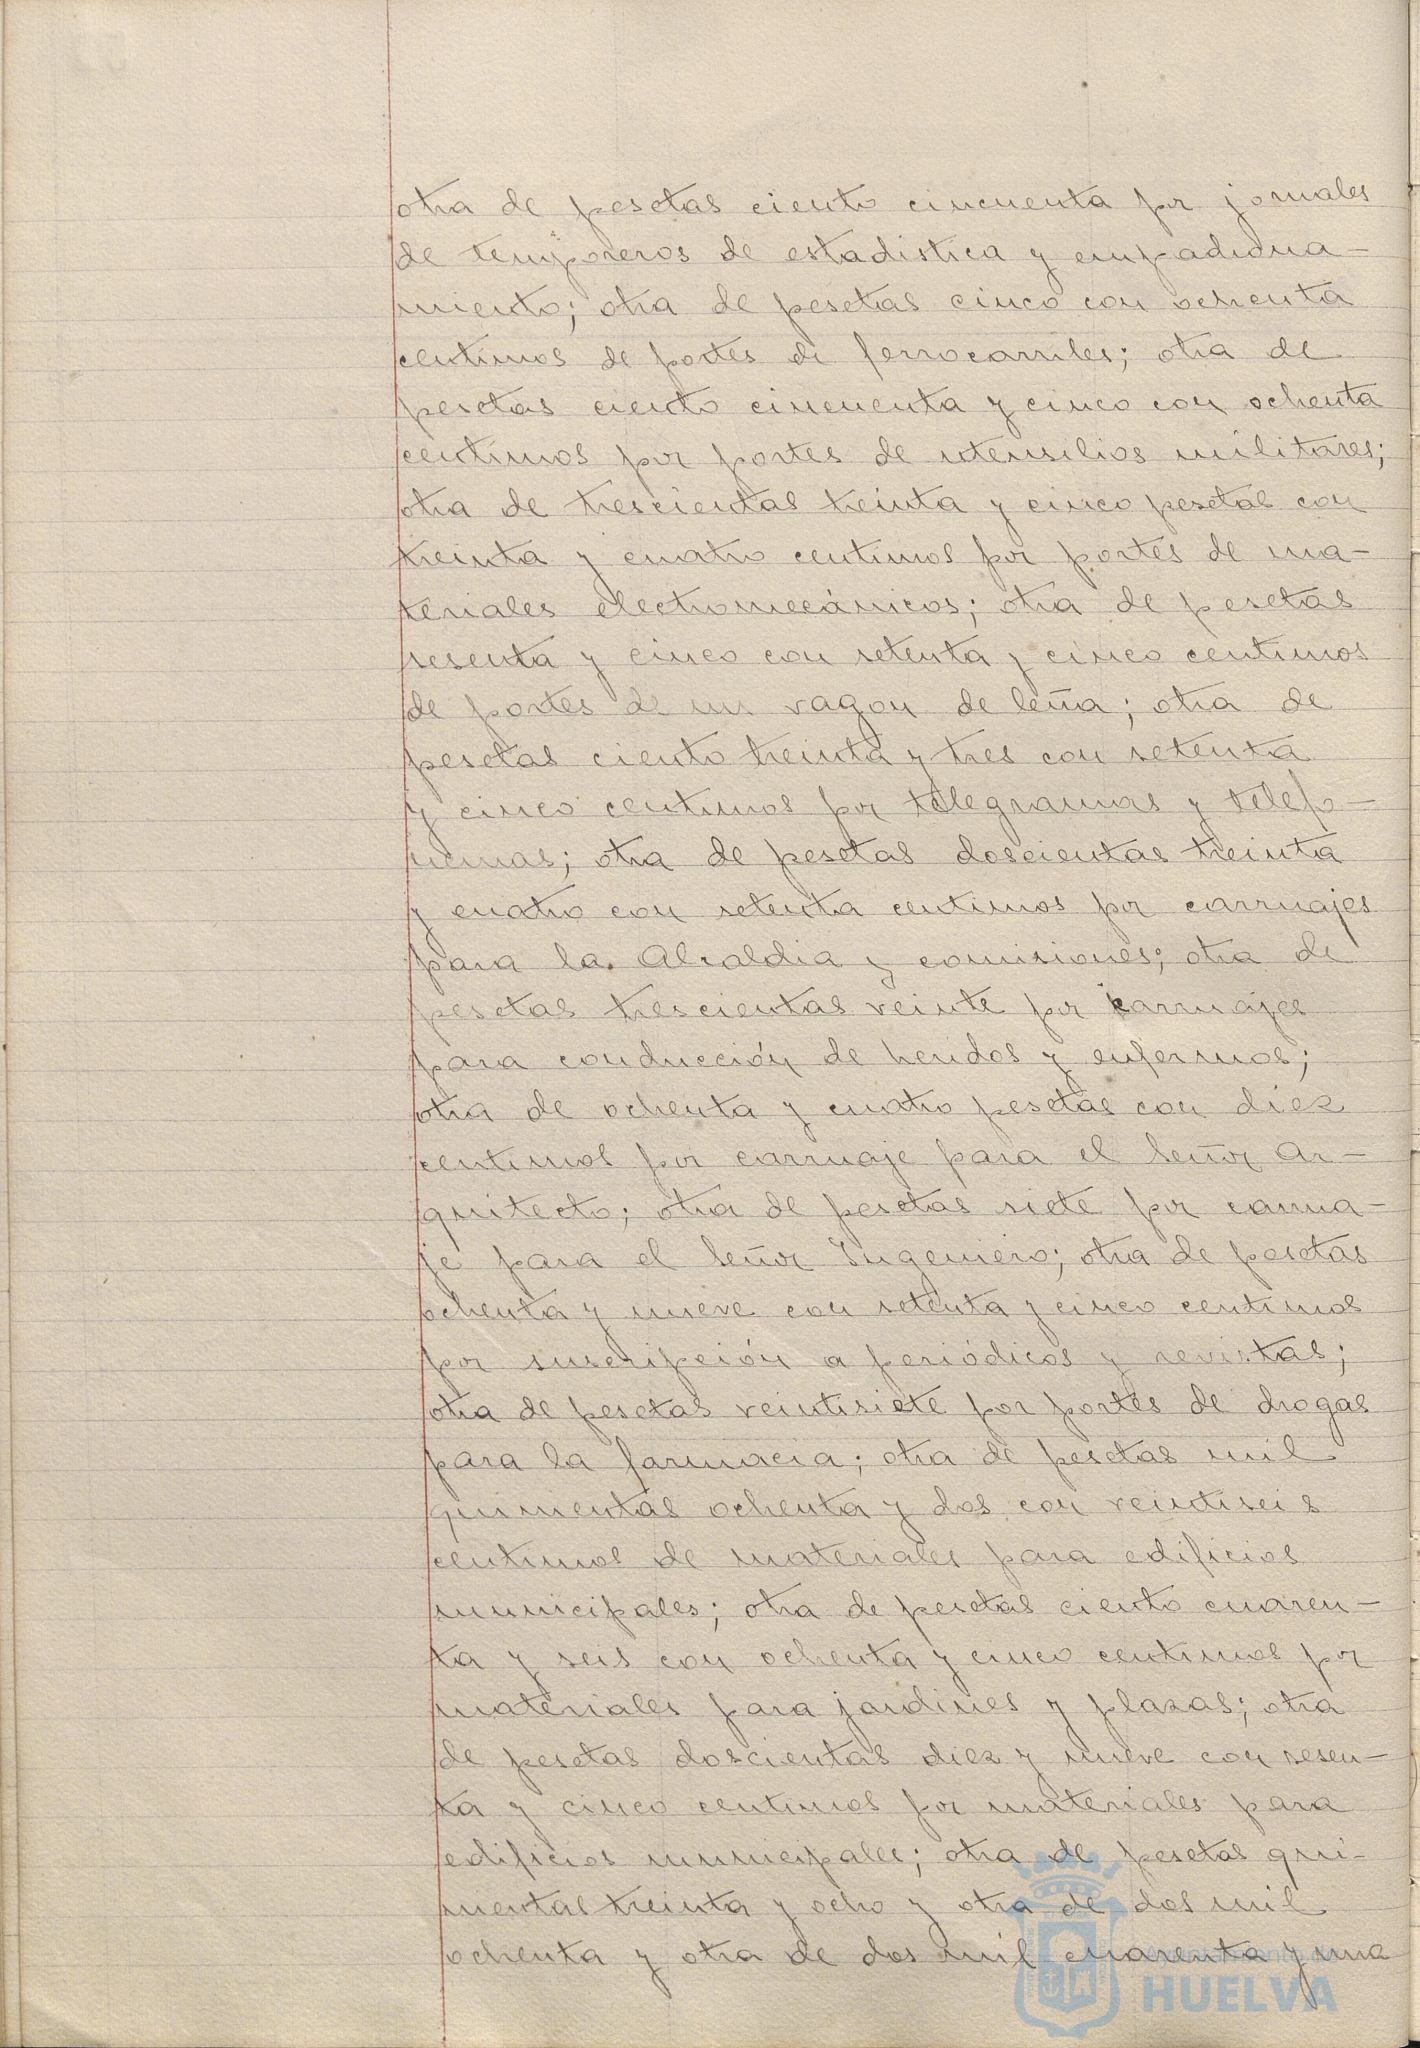 otra de pesetas ciento cincuenta por jornales
de temporeros de estadistica y empadrona-
miento; otra de pesetas cinco con ochenta
centimos de portes de ferrocarriles; otra de
pesetas ciento cincuenta y cinco con ochenta
centimos por portes de utensilios militares;
otra de trescientas treinta y cinco pesetas con
treinta y cuatro centimos por portes de ma-
teriales electromecánicos; otra de pesetas
sesenta y cinco con setenta y cinco centimos
de portes de un vagon de leña; otra de
pesetas ciento treinta y tres con setenta
y cinco centimos por telegramas y telefo-
nemas; otra de pesetas doscientas treinta
y cuatro con setenta centimos por carruajes
para la Alcaldia y comisiones; otra de
pesetas trescientas veinte por carruajes
para conducción de heridos y enfermos;
otra de ochenta y cuatro pesetas con diez
centimos por carruaje para el Señor Ar-
quitecto; otra de pesetas siete por carrua-
je para el Señor Ingeniero; otra de pesetas
ochenta y nueve con setenta y cinco centimos
por suscripción a periódicos y revistas;
otra de pesetas veintisiete por portes de drogas
para la farmacia; otra de pesetas mil
quinientas ochenta y dos con veintiseis
centimos de materiales para edificios
municipales; otra de pesetas ciento cuaren-
ta y seis con ochenta y cinco centimos por
materiales para jardines y plazas; otra
de pesetas doscientas diez y nueve con sesen-
ta y cinco centimos por materiales para
edificios municipales; otra de pesetas qui-
nientas treinta y ocho y otra de dos mil
ochenta y otra de dos mil cuarenta y una
Ayuntamiento de
HUELVA